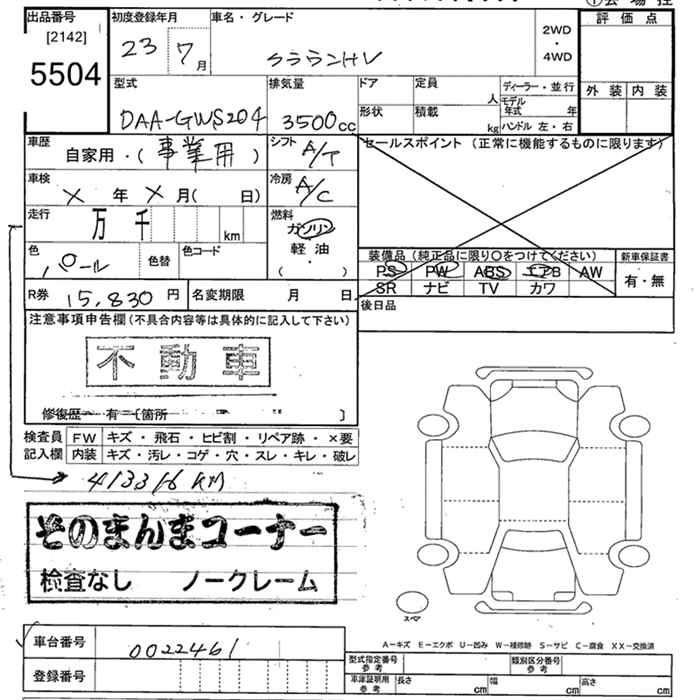 出品番号
[2142]
5504
初度登録年月
23 7月
車名・グレード
クラウンHV
2WD
・
4WD
評価点
外装 内装
型式
DAA-GWS204
排気量
3500cc
ドア
形状
定員
人
積載
kg
ディーラー・並行
モデル年式 年
ハンドル 左・右
車歴
自家用・(事業用)
シフト
A/T
セールスポイント (正常に機能するものに限ります)
車検
X 年 X 月( 日)
冷房
A/C
走行
万 千 km
燃料
ガソリン
軽油
・
( )
色
パール
色替
色コード
装備品(純正品に限り○をつけてください)
PS PW ABS エアB AW
SR ナビ TV カワ
新車保証書
有・無
R券 15,830 円
名変期限 月 日
後日品
注意事項申告欄(不具合内容等は具体的に記入して下さい)
不動車
修復歴 有 (箇所 )
検査員
記入欄
FW キズ・飛石・ヒビ割・リペア跡・×要
内装 キズ・汚レ・コゲ・穴・スレ・キレ・破レ
413316 KM
そのまんまコーナー
検査なし ノークレーム
スペア
A－キズ E－エクボ U－凹み W－補修跡 S－サビ C－腐食 XX－交換済
車台番号 0022461
登録番号
型式指定番号
参考
類別区分番号
参考
車庫証明用
参考
長さ cm 幅 cm 高さ cm